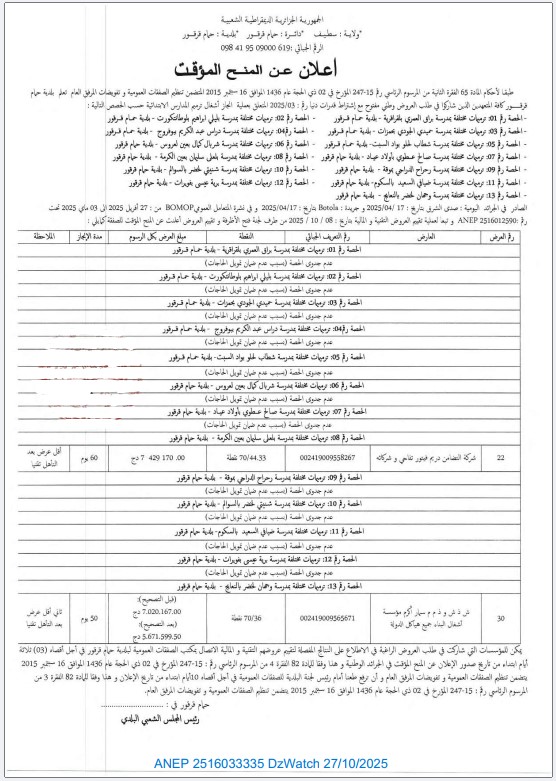 الجمهورية الجزائرية الديمقراطية الشعبية
*ولاية : سطيف *دائرة : حمام قرقور *بلدية : حمام قرقور
الرقم الجبائي :619 09000 95 41 098
أعلان عن المنح المؤقت
طبقا لأحكام المادة 65 الفقرة الثانية من المرسوم الرئاسي رقم 15-247 المؤرخ في 02 ذي الحجة عام 1436 الموافق 16 سبتمبر 2015 المتضمن تنظيم الصفقات العمومية و تفويضات المرفق العام تعلم بلدية حمام
قرقور كافة المتعهدين الذين شاركوا في طلب العروض وطني مفتوح مع إشتراط قدرات دنيا رقم : 2025/03 المتعلق بعملية انجاز أشغال ترميم المدارس الابتدائية حسب الحصص التالية :
- الحصة رقم 01: ترميمات مختلفة بمدرسة براق العمري بلقراقرية - بلدية حمام قرقور - الحصة رقم 02: ترميمات مختلفة بمدرسة بليلي ابراهيم بلوطاتكورت - بلدية حمام قرقور
- الحصة رقم 03: ترميمات مختلفة بمدرسة حميدي الجودي بحمزات - بلدية حمام قرقور - الحصة رقم 04: ترميمات مختلفة بمدرسة دراس عبد الكريم ببوفروج - بلدية حمام قرقور
- الحصة رقم 05: ترميمات مختلفة بمدرسة شطاب لحلو بواد السبت - بلدية حمام قرقور - الحصة رقم 06: ترميمات مختلفة بمدرسة شربال كمال بعين لعروس - بلدية حمام قرقور
- الحصة رقم 07: ترميمات مختلفة بمدرسة صالح عطوي بأولاد عياد - بلدية حمام قرقور - الحصة رقم 08: ترميمات مختلفة بمدرسة بلعلى سليمان بعين الكرمة - بلدية حمام قرقور
- الحصة رقم 09: ترميمات مختلفة بمدرسة رحراح الدراجي بموقة - بلدية حمام قرقور - الحصة رقم 10: ترميمات مختلفة بمدرسة شنيتي لخضر بالسوالم - بلدية حمام قرقور
- الحصة رقم 11: ترميمات مختلفة بمدرسة ضيافي السعيد بالسكوم- بلدية حمام قرقور - الحصة رقم 12: ترميمات مختلفة بمدرسة برية عيسى بفويرات - بلدية حمام قرقور
- الحصة رقم 13: ترميمات مختلفة بمدرسة وحمان لخضر بالنعايج - بلدية حمام قرقور
الصادر في الجرائد اليومية : صدى الشرق بتاريخ : 17 /2025/04 و جريدة : Botola بتاريخ : 2025/04/17 و في نشرة المتعامل العمومي BOMOP من : 27 أفريل 2025 الى 03 ماي 2025 تحت
رقم : ANEP 2516012590 و تبعا لعملية تقييم العروض التقنية و المالية بتاريخ : 08 / 10 / 2025 من طرف لجنة فتح الأظرفة و تقييم العروض أعلنت عن المنح المؤقت للصفقة كمايلي :
رقم العرض العارض رقم التعريف الجبائي النقطة مبلغ العرض بكل الرسوم مدة الإنجاز الملاحظة
الحصة رقم 01: ترميمات مختلفة بمدرسة براق العمري بلقراقرية - بلدية حمام قرقور
عدم جدوى الحصة (بسبب عدم ضمان تمويل الحاجات)
الحصة رقم 02: ترميمات مختلفة بمدرسة بليلي ابراهيم بلوطاتكورت - بلدية حمام قرقور
عدم جدوى الحصة (بسبب عدم ضمان تمويل الحاجات)
الحصة رقم 03: ترميمات مختلفة بمدرسة حميدي الجودي بحمزات - بلدية حمام قرقور
عدم جدوى الحصة (بسبب عدم ضمان تمويل الحاجات)
الحصة رقم 04: ترميمات مختلفة بمدرسة دراس عبد الكريم ببوفروج - بلدية حمام قرقور
عدم جدوى الحصة (بسبب عدم ضمان تمويل الحاجات)
الحصة رقم 05: ترميمات مختلفة بمدرسة شطاب لحلو بواد السبت- بلدية حمام قرقور
عدم جدوى الحصة (بسبب عدم ضمان تمويل الحاجات)
الحصة رقم 06: ترميمات مختلفة بمدرسة شربال كمال بعين لعروس - بلدية حمام قرقور
عدم جدوى الحصة (بسبب عدم ضمان تمويل الحاجات)
الحصة رقم 07: ترميمات مختلفة بمدرسة صالح عطوي بأولاد عياد - بلدية حمام قرقور
عدم جدوى الحصة (بسبب عدم ضمان تمويل الحاجات)
الحصة رقم 08: ترميمات مختلفة بمدرسة بلعلى سليمان بعين الكرمة - بلدية حمام قرقور
22 شركة التضامن دريم فيتور تفاحي و شركائه 002419009558267 70/44.33 نقطة 7 429 170 .00 دج 60 يوم أقل عرض بعد التأهل تقنيا
الحصة رقم 09: ترميمات مختلفة بمدرسة رحراح الدراجي بموقة - بلدية حمام قرقور
عدم جدوى الحصة (بسبب عدم ضمان تمويل الحاجات)
الحصة رقم 10: ترميمات مختلفة بمدرسة شنيتي لخضر بالسوالم - بلدية حمام قرقور
عدم جدوى الحصة (بسبب عدم ضمان تمويل الحاجات)
الحصة رقم 11: ترميمات مختلفة بمدرسة ضيافي السعيد بالسكوم- بلدية حمام قرقور
عدم جدوى الحصة (بسبب عدم ضمان تمويل الحاجات)
الحصة رقم 12: ترميمات مختلفة بمدرسة برية عيسى بفويرات - بلدية حمام قرقور
عدم جدوى الحصة (بسبب عدم ضمان تمويل الحاجات)
الحصة رقم 13: ترميمات مختلفة بمدرسة وحمان لخضر بالنعايج - بلدية حمام قرقور
30 ش ذ ش و ذ م م سيار أكرم مؤسسة أشغال البناء جميع هياكل الدولة 002419009565671 70/36 نقطة (قبل التصحيح): 7.020.167.00 دج (بعد التصحيح): 5.671.599.50 دج 50 يوم ثاني أقل عرض بعد التأهل تقنيا
يمكن للمؤسسات التي شاركت في طلب العروض الراغبة في الاطلاع على النتائج المفصلة لتقييم عروضهم التقنية و المالية الاتصال بمكتب الصفقات العمومية لبلدية حمام قرقور في أجل أقصاه (03) ثلاثة
أيام ابتداء من تاريخ صدور الإعلان عن المنح المؤقت في الجرائد الوطنية و هذا وفقا للمادة 82 الفقرة 4 من المرسوم الرئاسي رقم : 15-247 المؤرخ في 02 ذي الحجة عام 1436 الموافق 16 سبتمبر 2015
يتضمن تنظيم الصفقات العمومية و تفويضات المرفق العام، و أن ترفع طعنا أمام رئيس لجنة البلدية للصفقات العمومية في أجل أقصاه 10أيام ابتداء من تاريخ الإعلان و هذا وفقا للمادة 82 الفقرة 3 من
المرسوم الرئاسي رقم : 15-247 المؤرخ في 02 ذي الحجة عام 1436 الموافق 16 سبتمبر 2015 يتضمن تنظيم الصفقات العمومية و تفويضات المرفق العام.
حمام قرقور في : ............................
رئيس المجلس الشعبي البلدي
ANEP 2516033335 DzWatch 27/10/2025